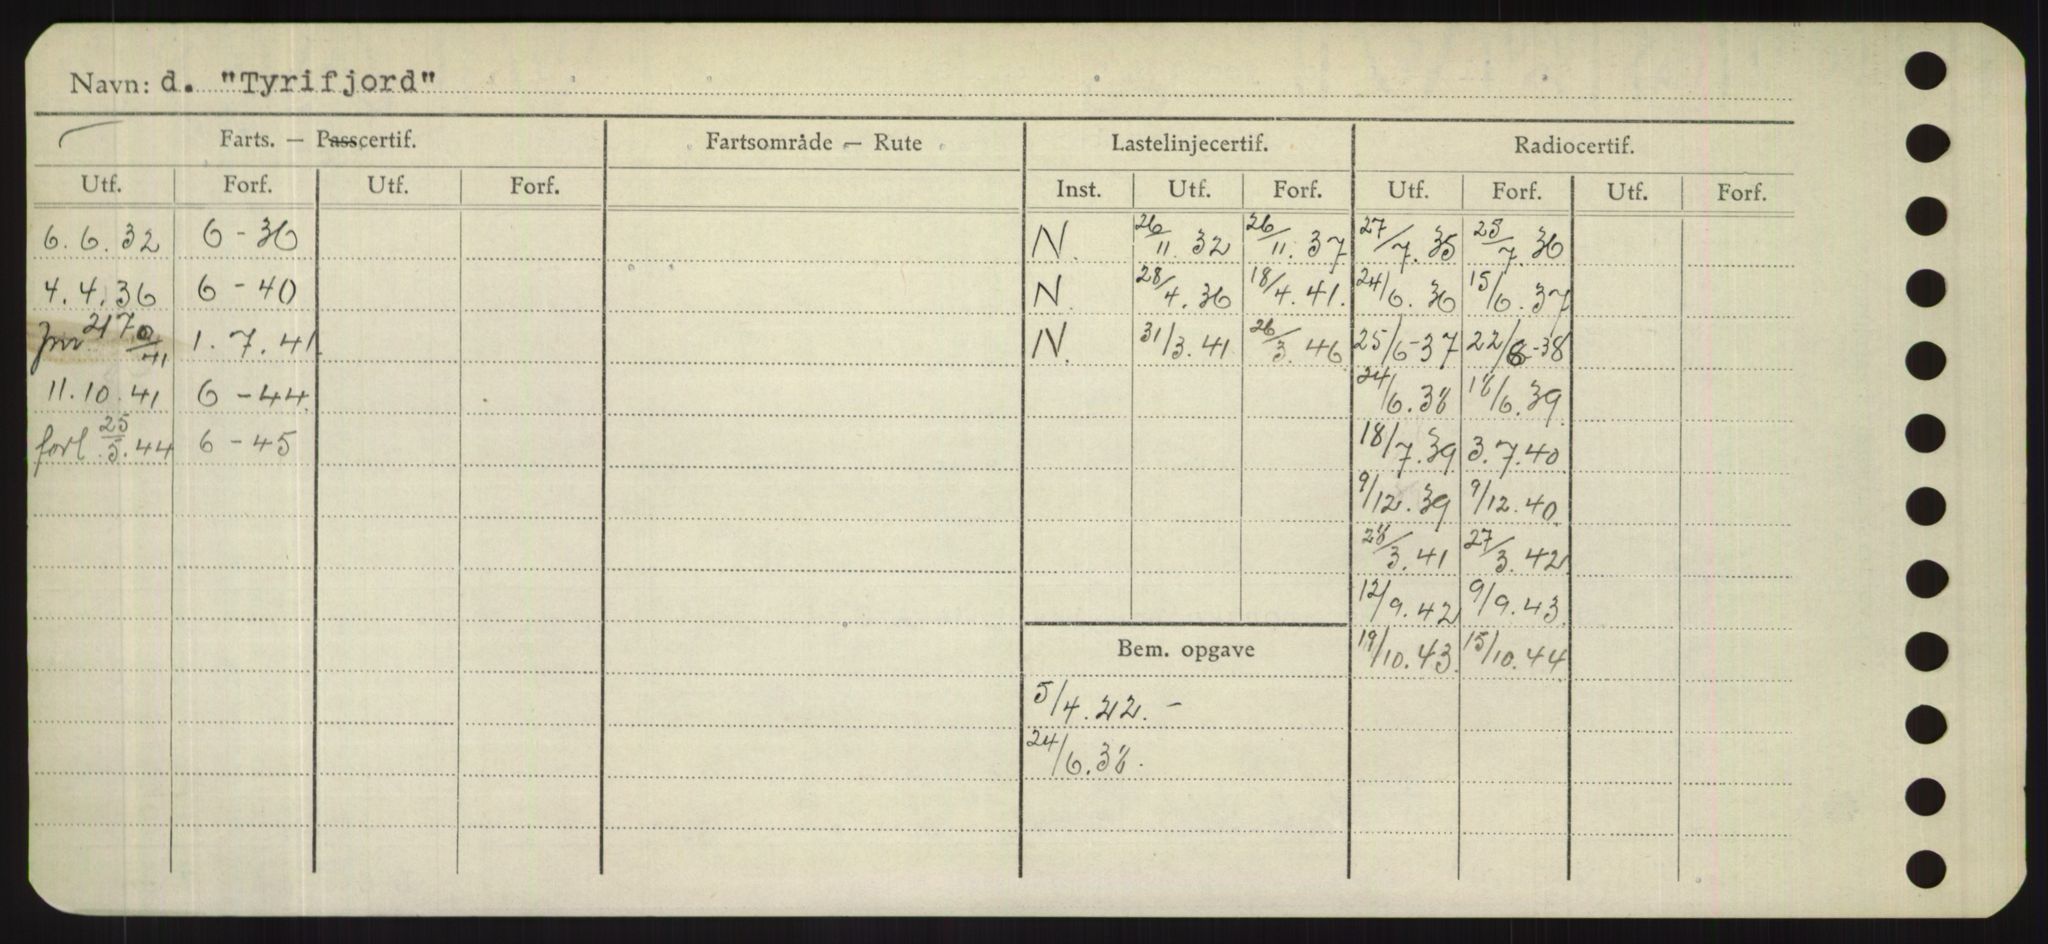 Navn: d. "Tyrifjord"
Farts. — Passcertif. Fartsområde — Rute Lastelinjecertif. Radiocertif.
Utf. Forf. Utf. Forf. Inst. Utf. Forf. Utf. Forf. Utf. Forf.
6.6.32 6-36 N. 26/11.32 26/11.37 27/7.35 25/7.36
4.4.36 6-40 N. 28/4.36 18/4.41. 24/6.36 15/6.37
1.7.41. N. 31/3.41 26/3.46 25/6-37 22/6-38
11.10.41 6-44 24/6.38 18/6.39
forl 25/5.44 6-45 18/7.39 3.7.40
9/12.39 9/12.40
28/3.41 27/3.42
12/9.42 9/9.43
Bem. opgave 19/10.43 15/10.44
5/4.22.-
24/6.38.